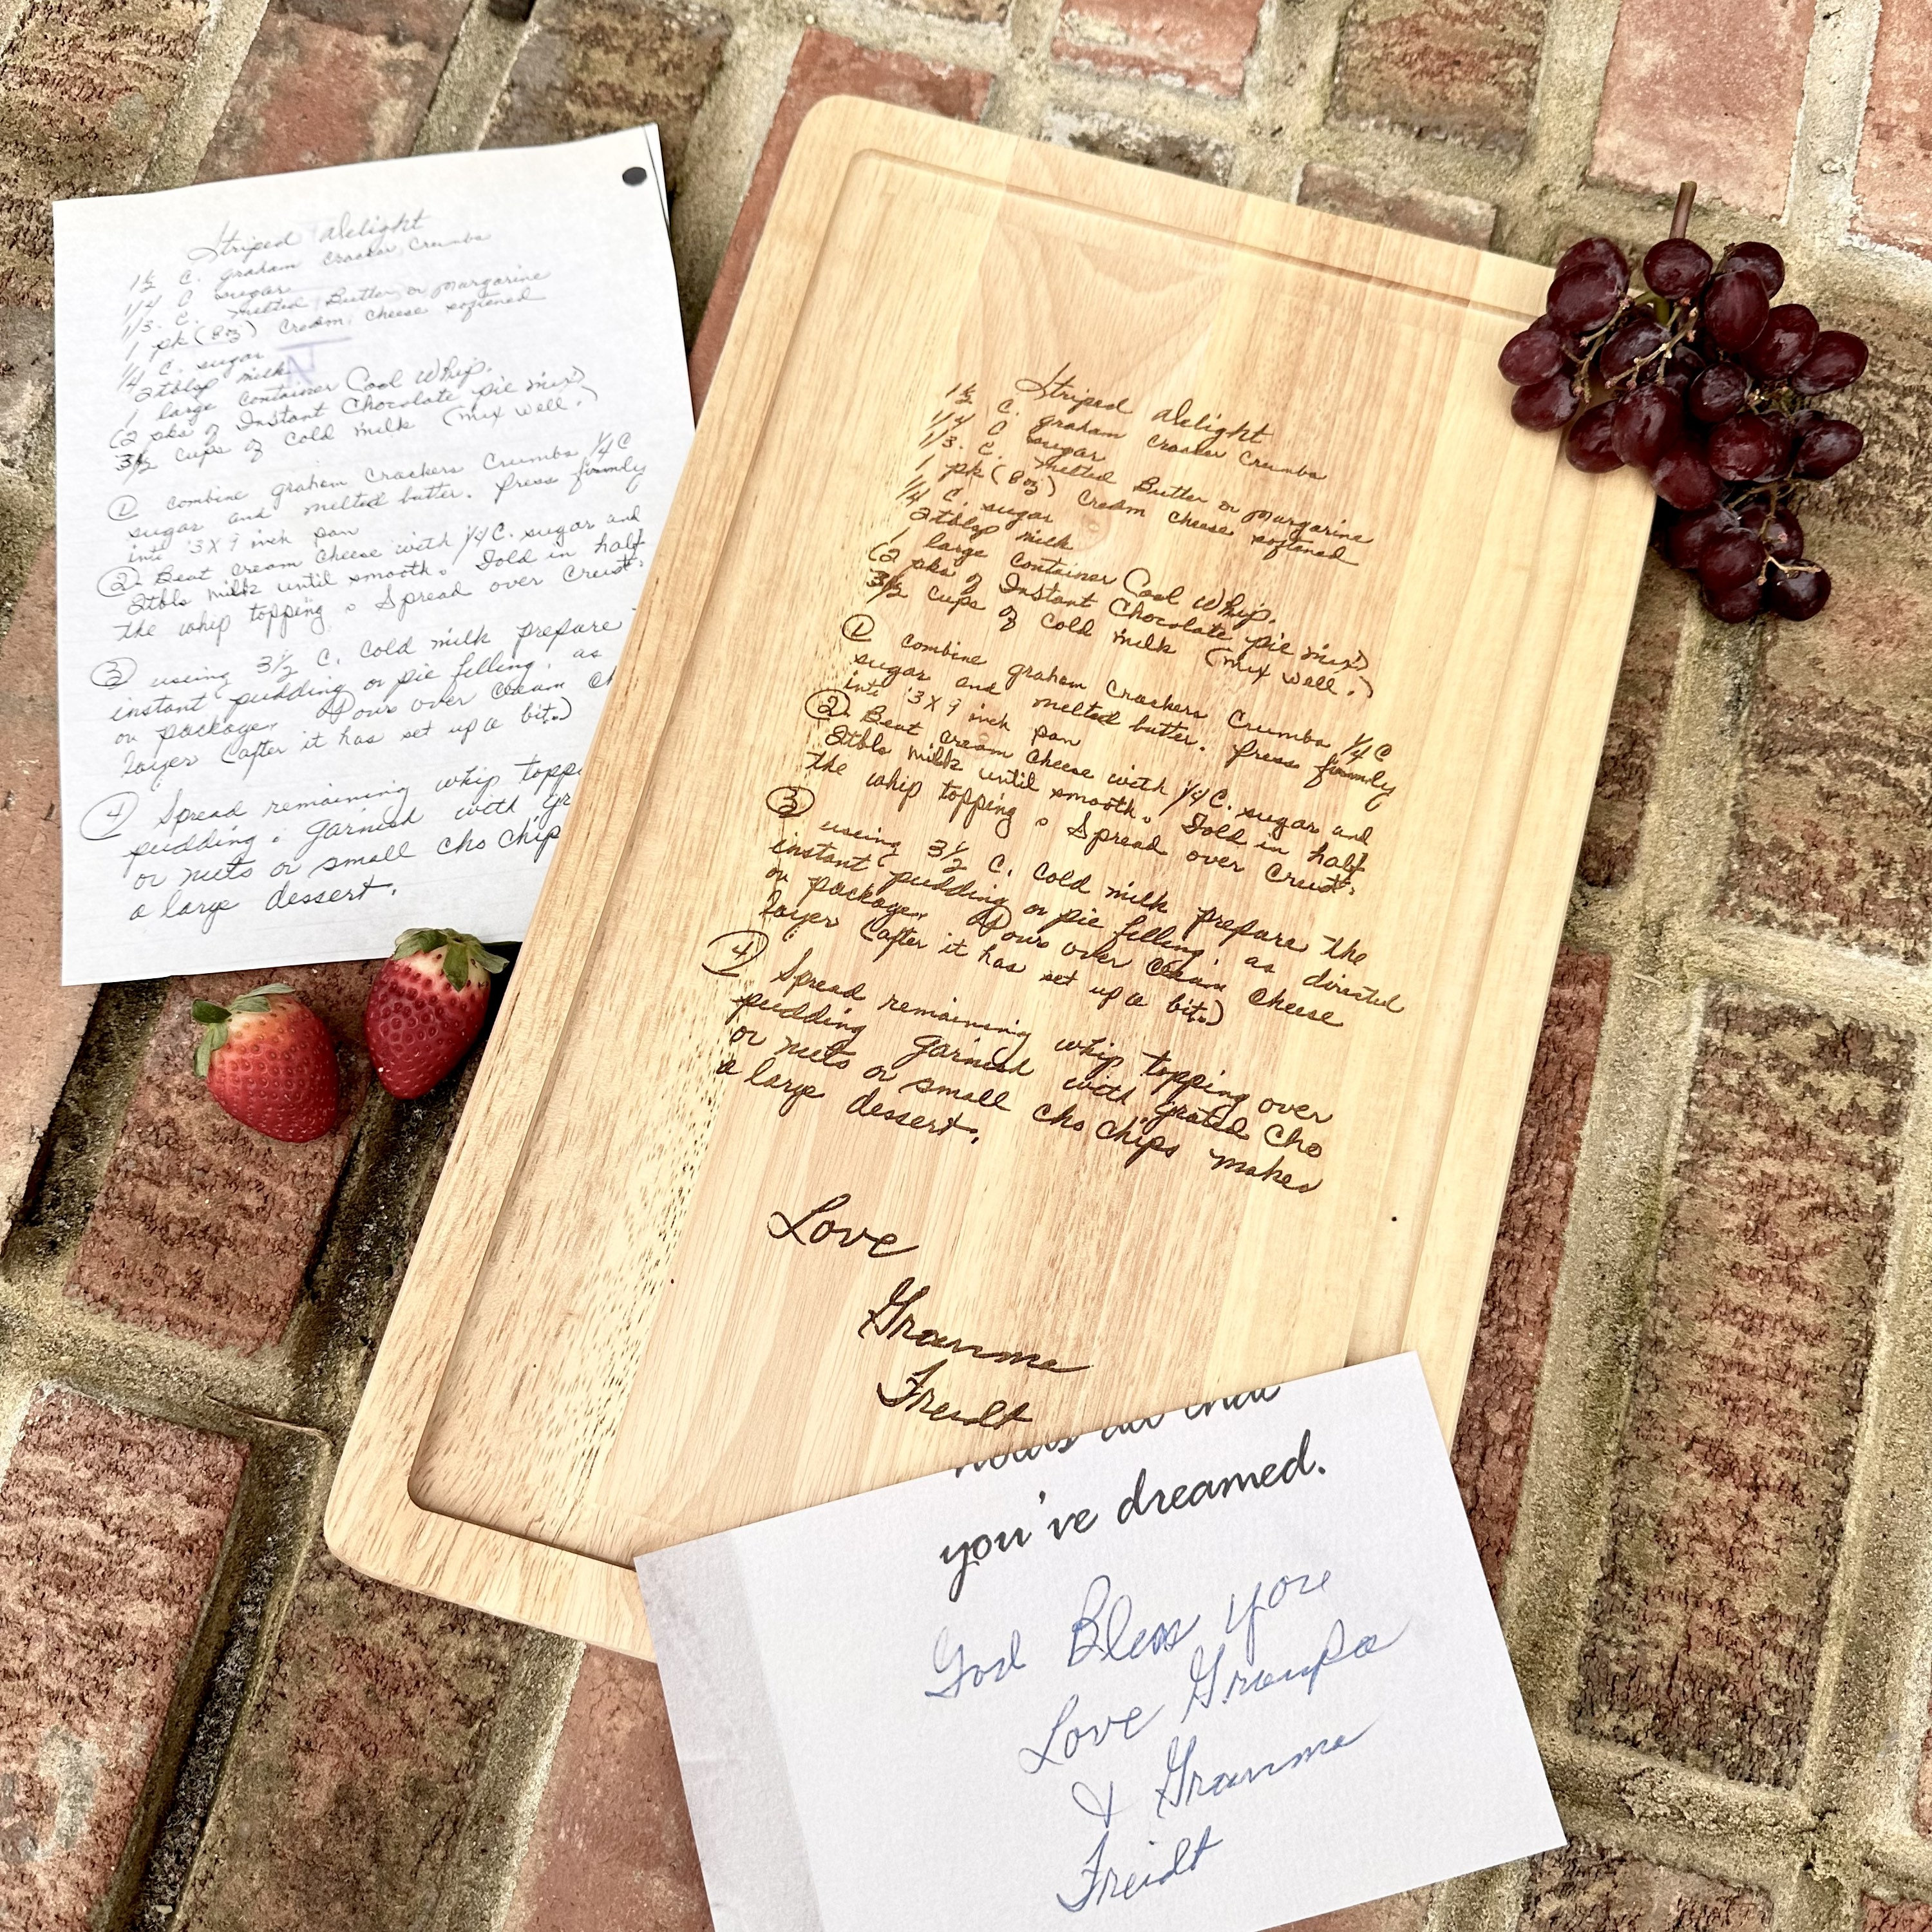 Striped Delight
1½ C. graham cracker crumbs
1/4 C sugar
1/3. C. melted Butter or margarine
1 pk (8oz) cream cheese softened
1/4 C. sugar
2tblsp milk
1 large container Cool Whip.
(2 pks of Instant Chocolate pie mix)
3½ cups of cold milk (mix well.)
① combine graham Crackers Crumbs 1/4 C
sugar and melted butter. Press firmly
into 13X9 inch pan
② Beat cream cheese with 1/4 C. sugar and
2tbls milk until smooth. Fold in half
the whip topping. Spread over Crust.
③ using 3½ C. cold milk prepare
instant pudding or pie filling. as
on package. Pour over cream ch
layer (after it has set up a bit.)
④ Spread remaining whip topp
pudding. garnish with gr
or nuts or small cho chip
a large dessert.
Striped Delight
1½ C. graham cracker crumbs
1/4 C sugar
1/3. C. melted Butter or margarine
1 pk (8oz) cream cheese softened
1/4 C. sugar
2tblsp milk
1 large container Cool Whip.
(2 pks of Instant Chocolate pie mix)
3½ cups of cold milk (mix well.)
① combine graham Crackers Crumbs 1/4 C
sugar and melted butter. Press firmly
into 13X9 inch pan
② Beat cream cheese with 1/4 C. sugar and
2tbls milk until smooth. Fold in half
the whip topping. Spread over Crust.
③ using 3½ C. cold milk prepare the
instant pudding or pie filling as directed
on package. Pour over cream cheese
layer (after it has set up a bit.)
④ Spread remaining whip topping over
pudding garnish with grated Cho
or nuts or small cho chips makes
a large dessert.
Love
Gramma
Freidt
all that
you've dreamed.
God Bless you
Love Grampa
& Gramma
Freidt